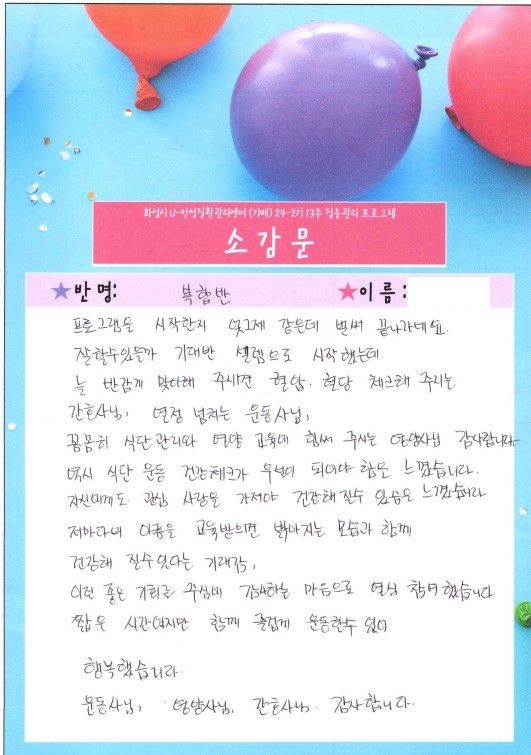 화성시 U-만성질환관리센터(기배) 24-2기 13주 집중관리 프로그램
소감문
반 명: 복합반 이 름 :
프로그램을 시작한지 엊그제 같은데 벌써 끝나가네요.
잘할수있을까 기대반 셀렘으로 시작했는데
늘 반갑게 맞이해 주시면 혈압, 혈당 체크해 주시는
간호사님, 열정 넘치는 운동사님,
꼼꼼히 식단관리와 영양 교육에 힘써 주시는 영양사님 감사합니다.
역시 식단 운동 건강체크가 우선이 되어야 함을 느꼈습니다.
자신에게도 관심 사랑을 가져야 건강해 질수 있음을 느꼈습니다
저마다의 교육받으면 밝아지는 모습과 함께
건강해 질수있다는 기대감,
이런 좋은 기회를 주심에 감사하는 마음으로 열심 참여했습니다
짧은 시간이지만 함께 즐겁게 운동할수 있어
행복했습니다.
운동사님, 영양사님, 간호사님. 감사합니다.